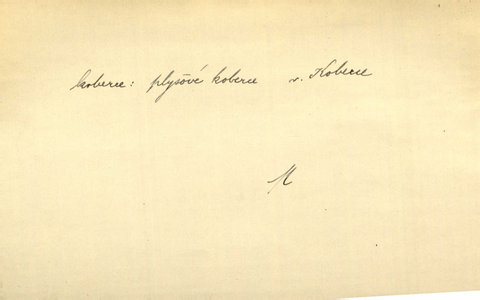 koberce: plyšové koberce v. Koberce
M